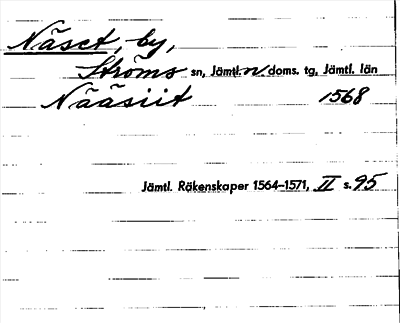 Näset, by,
Ströms sn, Jämtl. n domss. tg, Jämtl. län
Nääsiit 1568
Jämtl. Räkenskaper 1564–1571, II s. 95